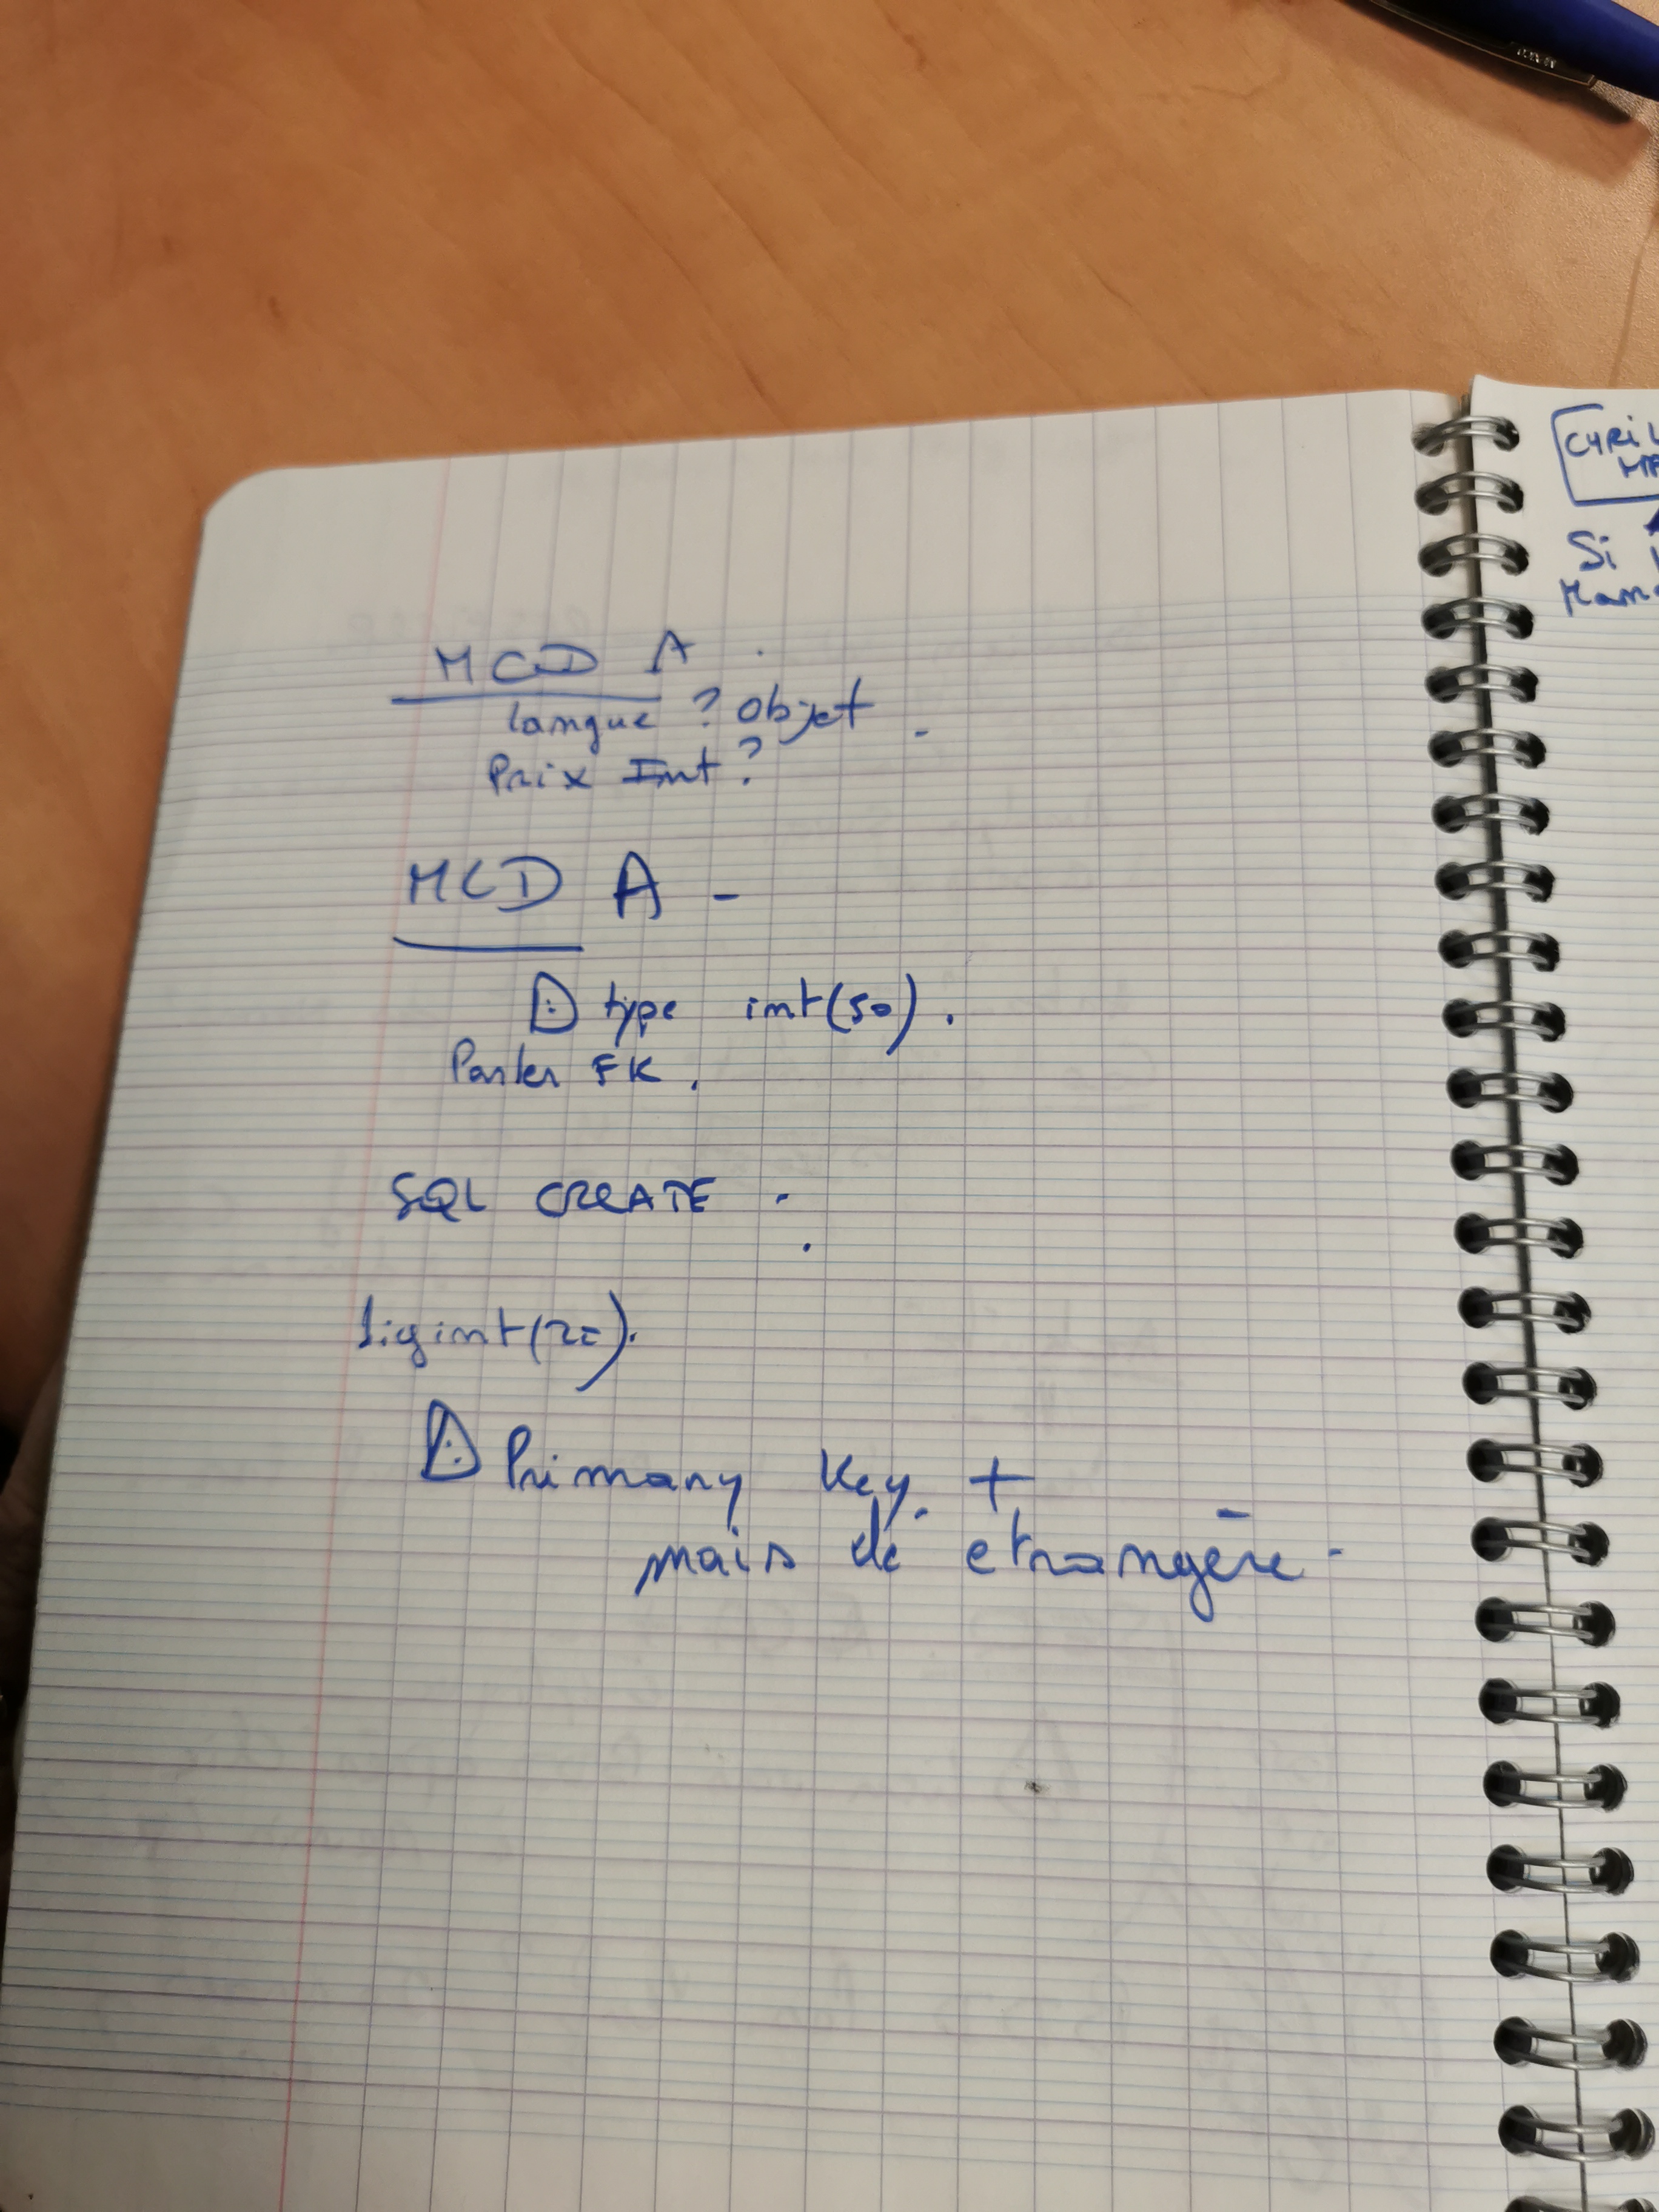 MCD A .
langue ? objet .
Prix Int ?
MCD A -
type int(50) .
Parler FK .
SQL CREATE .
bigint(20).
Primary Key. +
mais clé etrangère -
Si